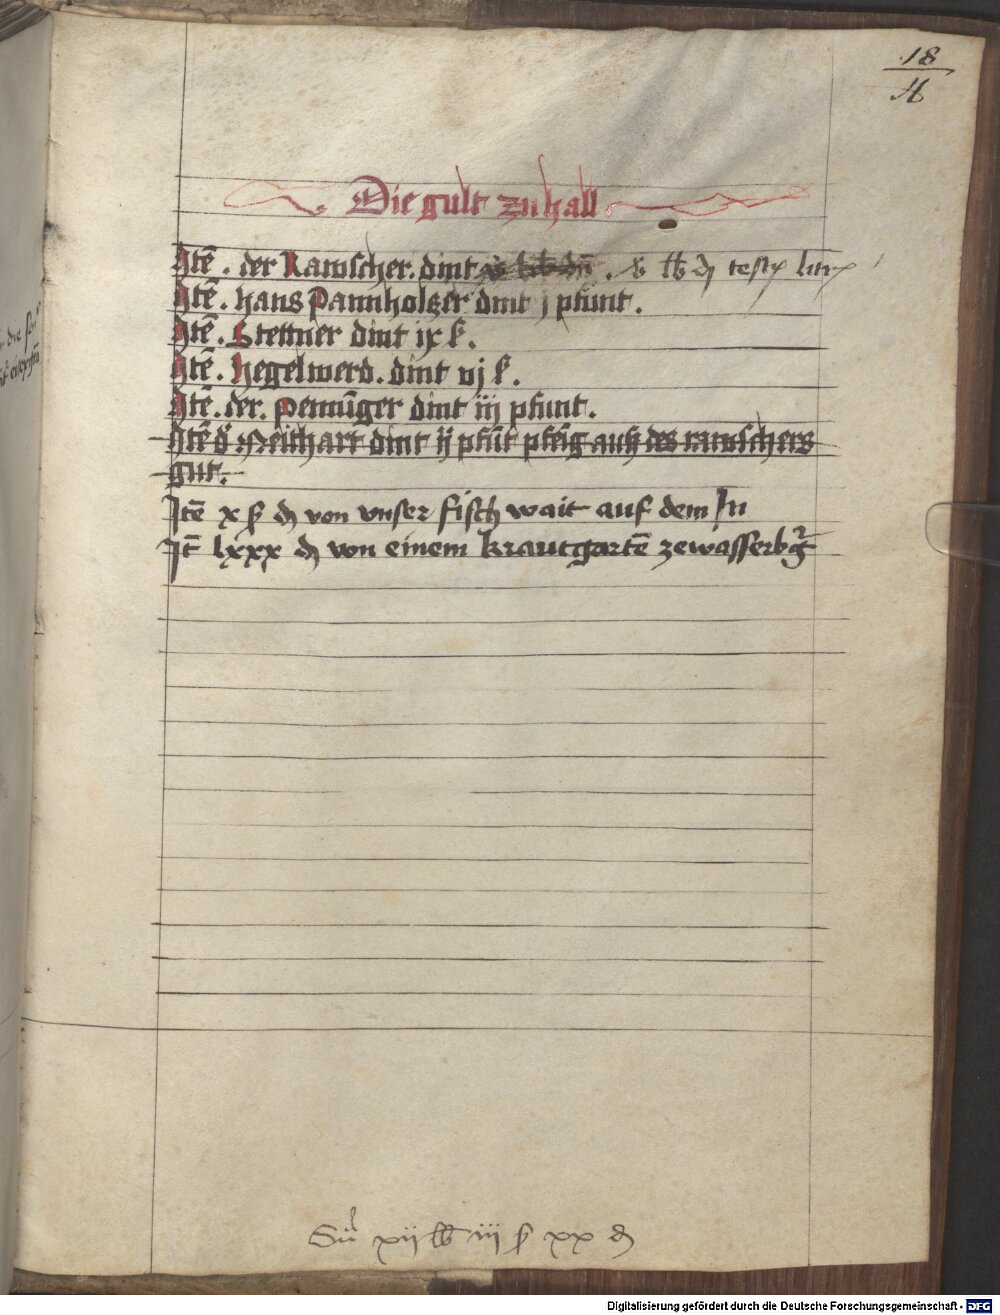 18
Die gult zu hall
Itē . der Rauscher . dint . x lb ₰
Itē . hans Pannholtzer dint j pfunt .
Itē . Stettner dint ix ß .
Itē . Hegelwerd . dint vj ß .
Itē . der . Pennīger dint iij pfunt .
Itē d' Neithart dint ij pfūt pfēīg auß des rauschers
gut .
Itē x ß ₰ von vnser fisch wait auf dem In
It̄ lxxx ₰ von einem krautgartē zewasserbg̃
Sū xij lb iij ß xx ₰
Digitalisierung gefördert durch die Deutsche Forschungsgemeinschaft - DFG